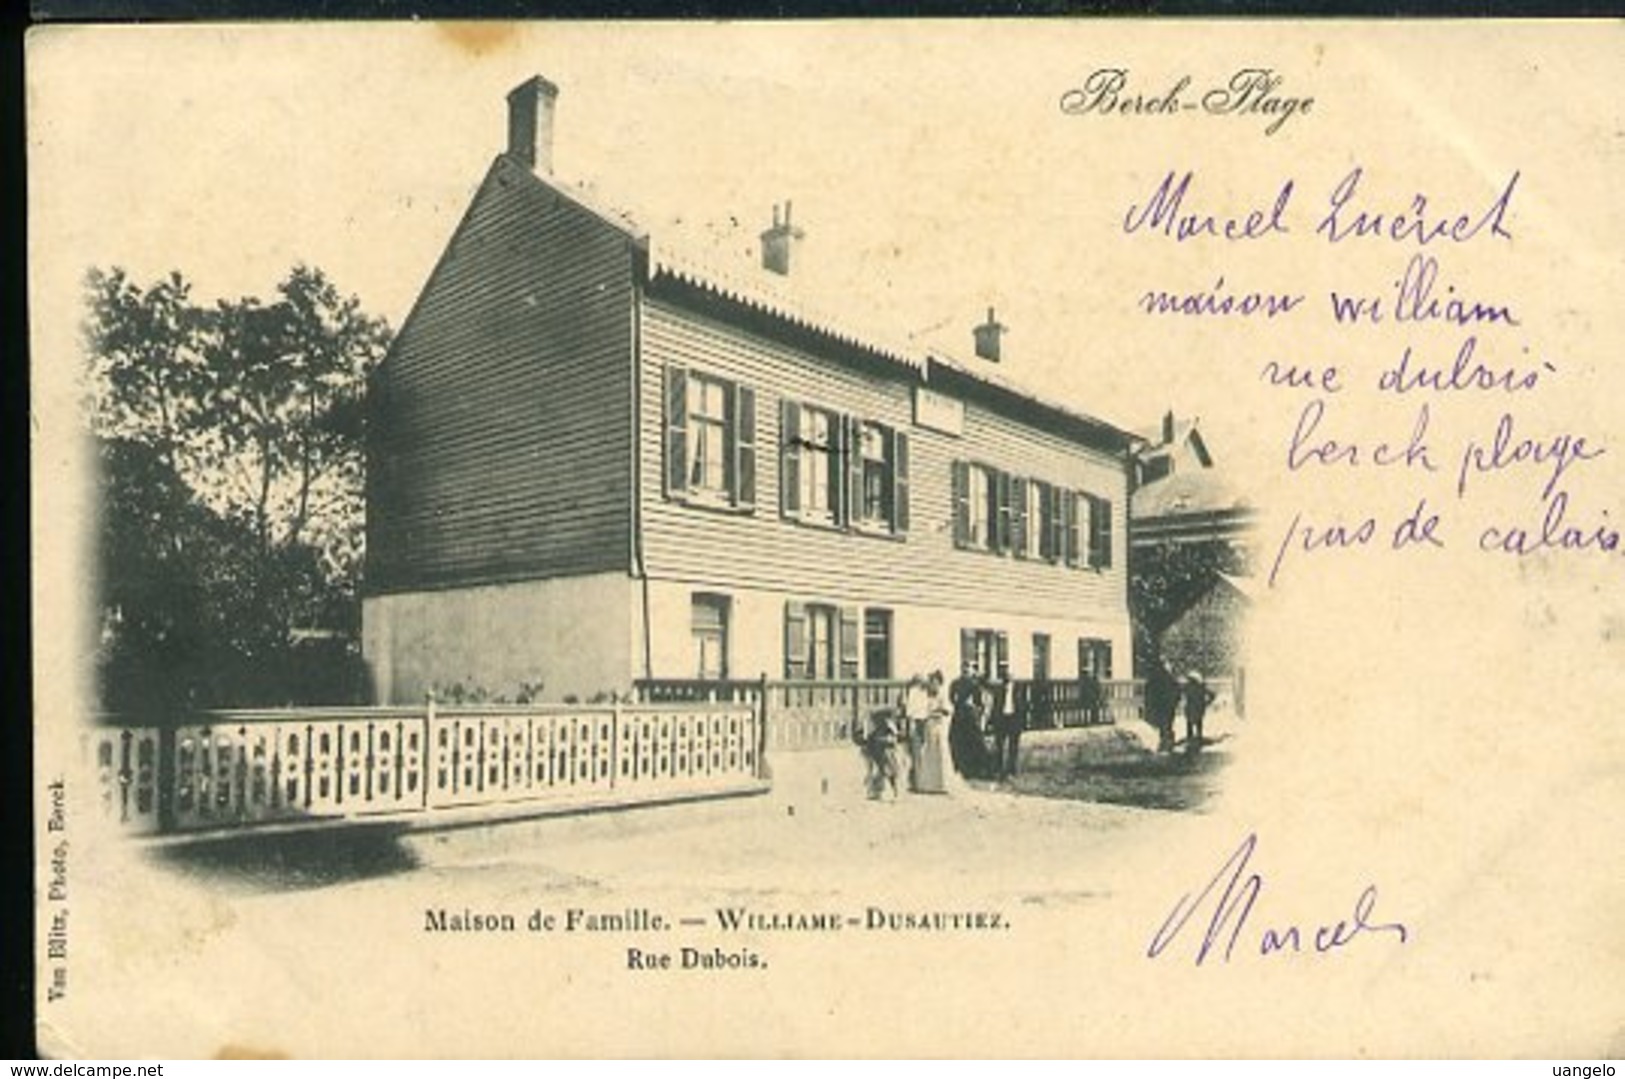 Berck-Plage
Marcel
maison william
rue dubois
berck plage
pas de calais
Marcel
Maison de Famille. — WILLIAME-DUSAUTIEZ.
Rue Dubois.
Van Blitz, Photo, Berck
delcampe.net
uangelo